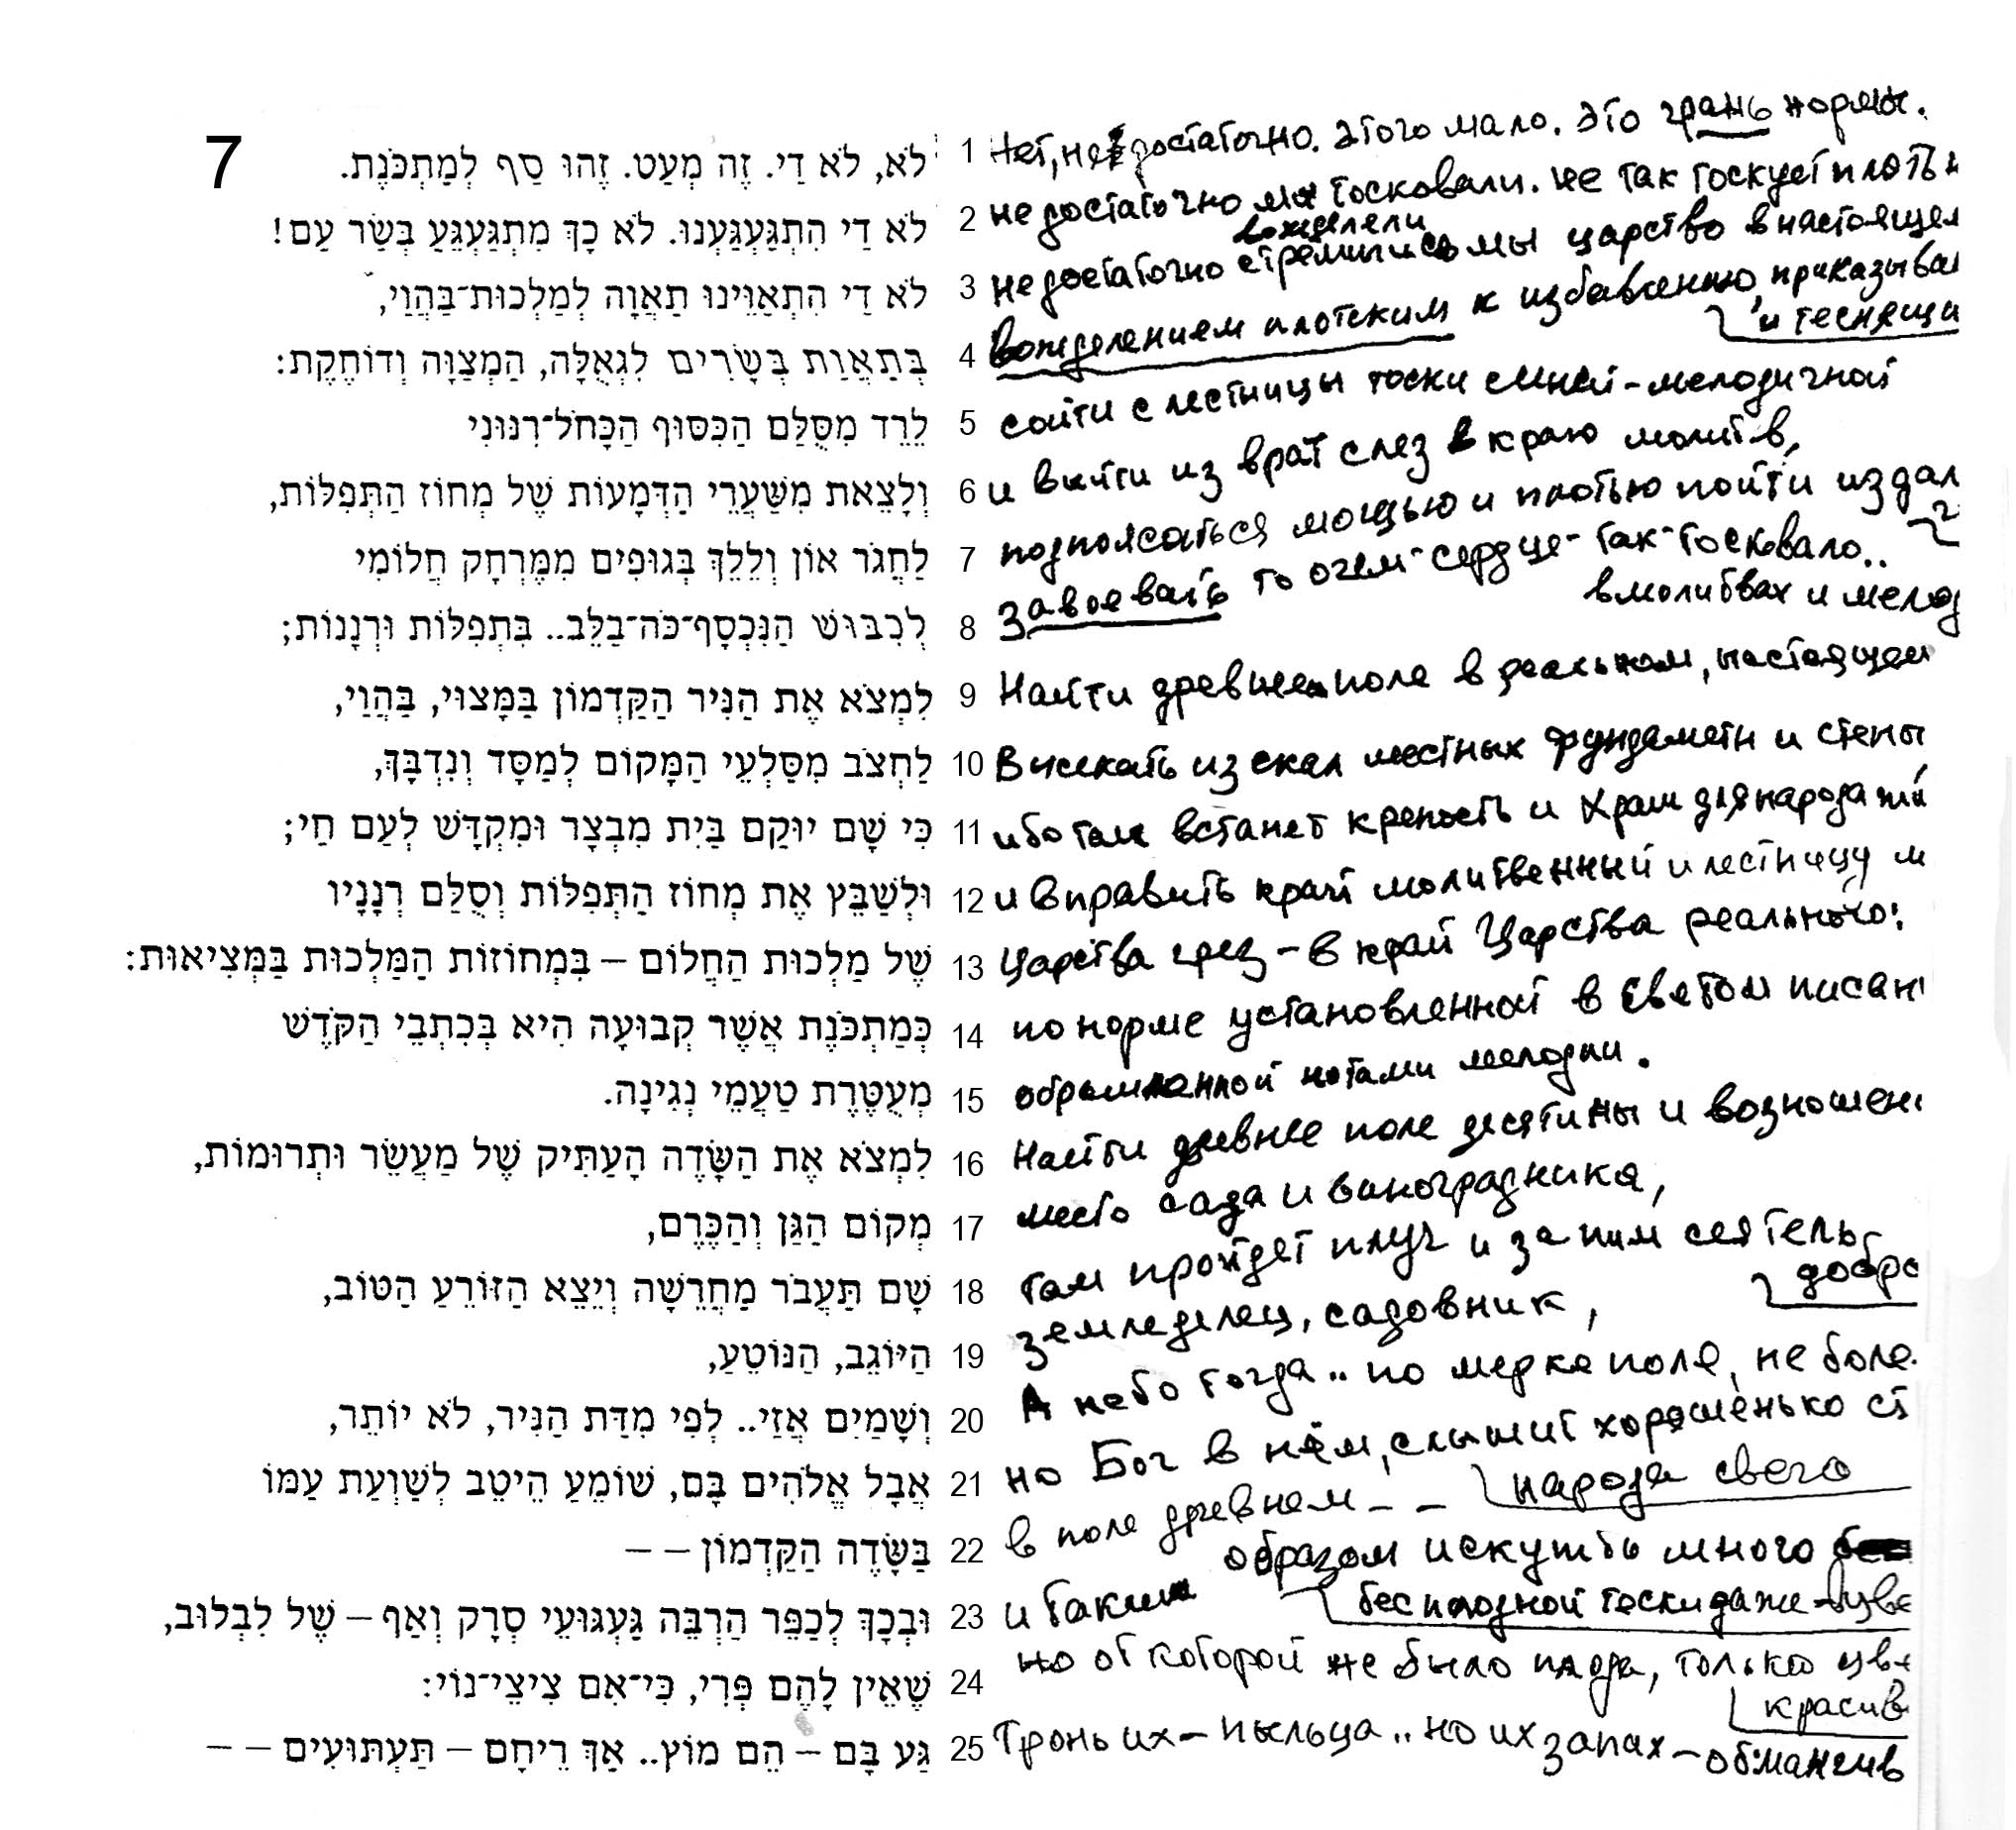 7
לֹא, לֹא דַי. זֶה מְעַט. זֶהוּ סַף לְמַתְכֹּנֶת. 1 Нет, не достаточно. Этого мало. Это грань нормы.
לֹא דַי הִתְגַּעְגַּעְנוּ. לֹא כָךְ מִתְגַּעְגֵּעַ בְּשַׂר עַם! 2 недостаточно мы тосковали. не так тоскует плоть н
вожделели
לֹא דַי הִתְאַוֵּינוּ תַאֲוָה לְמַלְכוּת־בַּהֲוַי, 3 недостаточно стремились мы царство в настоящем
בְּתַאֲוַת בְּשָׂרִים לִגְאֻלָּה, הַמְצַוָּה וְדוֹחֶקֶת: 4 вожделением плотским к избавлению, приказыва
и теснящи
לֵרֵד מִסֻּלַּם הַכִּסּוּף הַכָּחֹל־רִנּוּנִי 5 сойти с лестницы тоски синей-мелодичной
וְלָצֵאת מִשַּׁעֲרֵי הַדְּמָעוֹת שֶׁל מְחוֹז הַתְּפִלּוֹת, 6 и выйти из врат слез в краю молитв,
לַחְגֹר אוֹן וְלֵלֵךְ בְּגוּפִים מִמֶּרְחַק חֲלוֹמִי 7 подпоясаться мощью и плотью пойти из дал
לִכְבּוּשׁ הַנִּכְסָף־כֹּה־בַלֵּב.. בִּתְפִלּוֹת וּרְנָנוֹת; 8 завоевать то о чем-сердце-так-тосковало..
в молитвах и мелод
לִמְצֹא אֶת הַנִּיר הַקַּדְמוֹן בַּמָּצוּי, בַּהֲוַי, 9 Найти древнее поле в реальном, настоящем
לַחְצֹב מִסַּלְעֵי הַמָּקוֹם לְמַסָּד וְנִדְבָּךְ, 10 Высекать из скал местных фундаметн и стены
כִּי שָׁם יוּקַם בַּיִת מִבְצָר וּמִקְדָּשׁ לְעַם חַי; 11 ибо там встанет крепость и храм для народа жи
וּלְשַׁבֵּץ אֶת מְחוֹז הַתְּפִלּוֹת וְסֻלַּם רְנָנָיו 12 и вправить край молитвенный и лестницу м
שֶׁל מַלְכוּת הַחֲלוֹם – בִּמְחוֹזוֹת הַמַּלְכוּת בַּמְּצִיאוּת: 13 Царства грез – в край Царства реального:
כְּמַתְכֹּנֶת אֲשֶׁר קְבוּעָה הִיא בְּכִתְבֵי הַקֹּדֶשׁ 14 по норме установленной в Святом писан
מְעֻטֶּרֶת טַעֲמֵי נְגִינָה. 15 обрамленной нотами мелодии.
לִמְצֹא אֶת הַשָּׂדֶה הָעַתִּיק שֶׁל מַעֲשֵׂר וּתְרוּמוֹת, 16 Найти древнее поле десятины и возношен
מְקוֹם הַגַּן וְהַכֶּרֶם, 17 место сада и виноградника,
שָׁם תַּעֲבֹר מַחֲרֵשָׁה וְיֵצֵא הַזּוֹרֵעַ הַטּוֹב, 18 там пройдет плуг и за ним сеятель
добро
הַיּוֹגֵב, הַנּוֹטֵעַ, 19 земледелец, садовник,
וְשָׁמַיִם אֲזַי.. לְפִי מִדַּת הַנִּיר, לֹא יוֹתֵר, 20 А небо тогда.. по мерке поля, не боле
אֲבָל אֱלֹהִים בָּם, שׁוֹמֵעַ הֵיטֵב לְשַׁוְעַת עַמּוֹ 21 но Бог в нём, слышит хорошенько ст
народа свего
בַּשָּׂדֶה הַקַּדְמוֹן – – 22 в поле древнем – –
וּבְכָךְ לְכַפֵּר הַרְבֵּה גַּעְגּוּעֵי סְרָק וְאַף – שֶׁל לִבְלוּב, 23 и таким образом искупить много
бесплодной тоски даже – цве
שֶׁאֵין לָהֶם פְּרִי, כִּי־אִם צִיצֵי־נוֹי: 24 но от которой не было плода, только цве
красив
גַּע בָּם – הֵם מוֹץ.. אַךְ רֵיחָם – תַּעְתּוּעִים – – 25 Тронь их – пыльца.. но их запах – обманчив